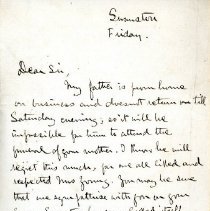 Friday.
Dear Sir,
My father is from home
on business and does not return till
Saturday evening, so it will be
impossible for him to attend the
funeral of your mother. I know he will
regret this much, for we all liked and
respected Mrs Young. You may be sure
that we sympathise with you in your